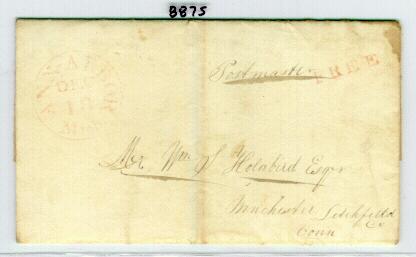 8875
ANN ARBOR
DEC
18
Postmaster
FREE
Mr. Wm S Holabird Esqr
Winchester Litchfield Co
Conn